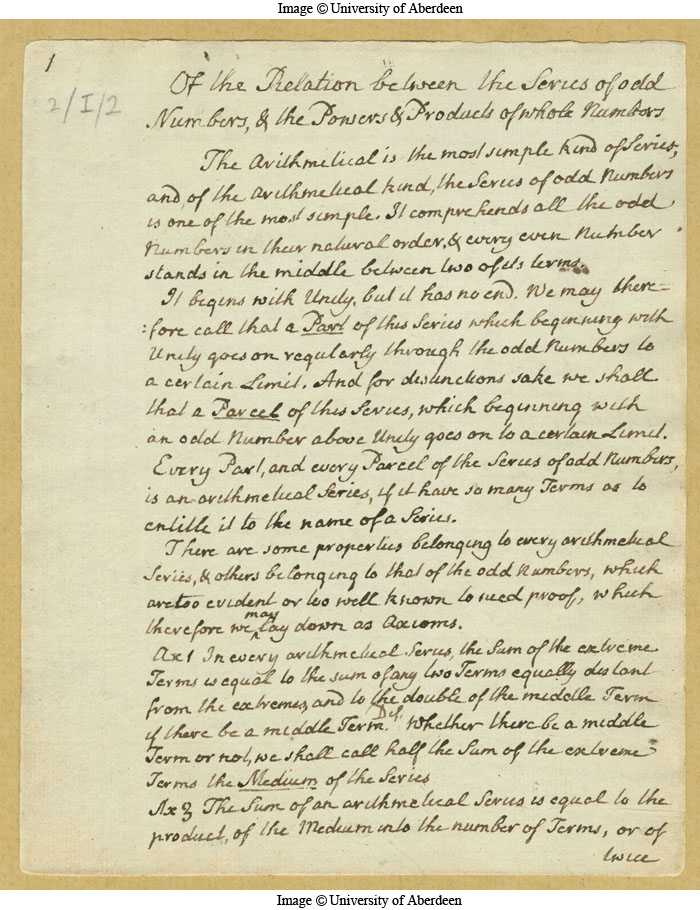 Image © University of Aberdeen
1
2/I/2
Of the Relation between the Series of odd
Numbers, & the Powers & Products of whole Numbers
The Arithmetical is the most simple kind of Series,
and, of the arithmetical kind, the Series of odd Numbers
is one of the most simple. It comprehends all the odd
Numbers in their natural order, & every even Number
stands in the middle between two of its terms.
It begins with Unity, but it has no end. We may there=
:fore call that a Part of this Series which beginning with
Unity goes on regularly through the odd Numbers to
a certain Limit. And for distinctions sake we shall
that a Parcel of this Series, which beginning with
an odd Number above Unity goes on to a certain Limit.
Every Part, and every Parcel of the Series of odd Numbers,
is an arithmetical Series, if it have so many Terms as to
entitle it to the name of a Series.
There are some properties belonging to every arithmetical
Series, & others belonging to that of the odd Numbers, which
are too evident or too well known to need proof, which
therefore we may lay down as Axioms.
Ax 1 In every arithmetical Series, the Sum of the extreme
Terms is equal to the sum of any two Terms equally distant
from the extremes, and to the double of the middle Term
if there be a middle Term. Def. Whether there be a middle
Term or not, we shall call half the Sum of the extreme
Terms the Medium of the Series
Ax 2 The Sum of an arithmetical Series is equal to the
product, of the Medium into the number of Terms, or of
twice
Image © University of Aberdeen